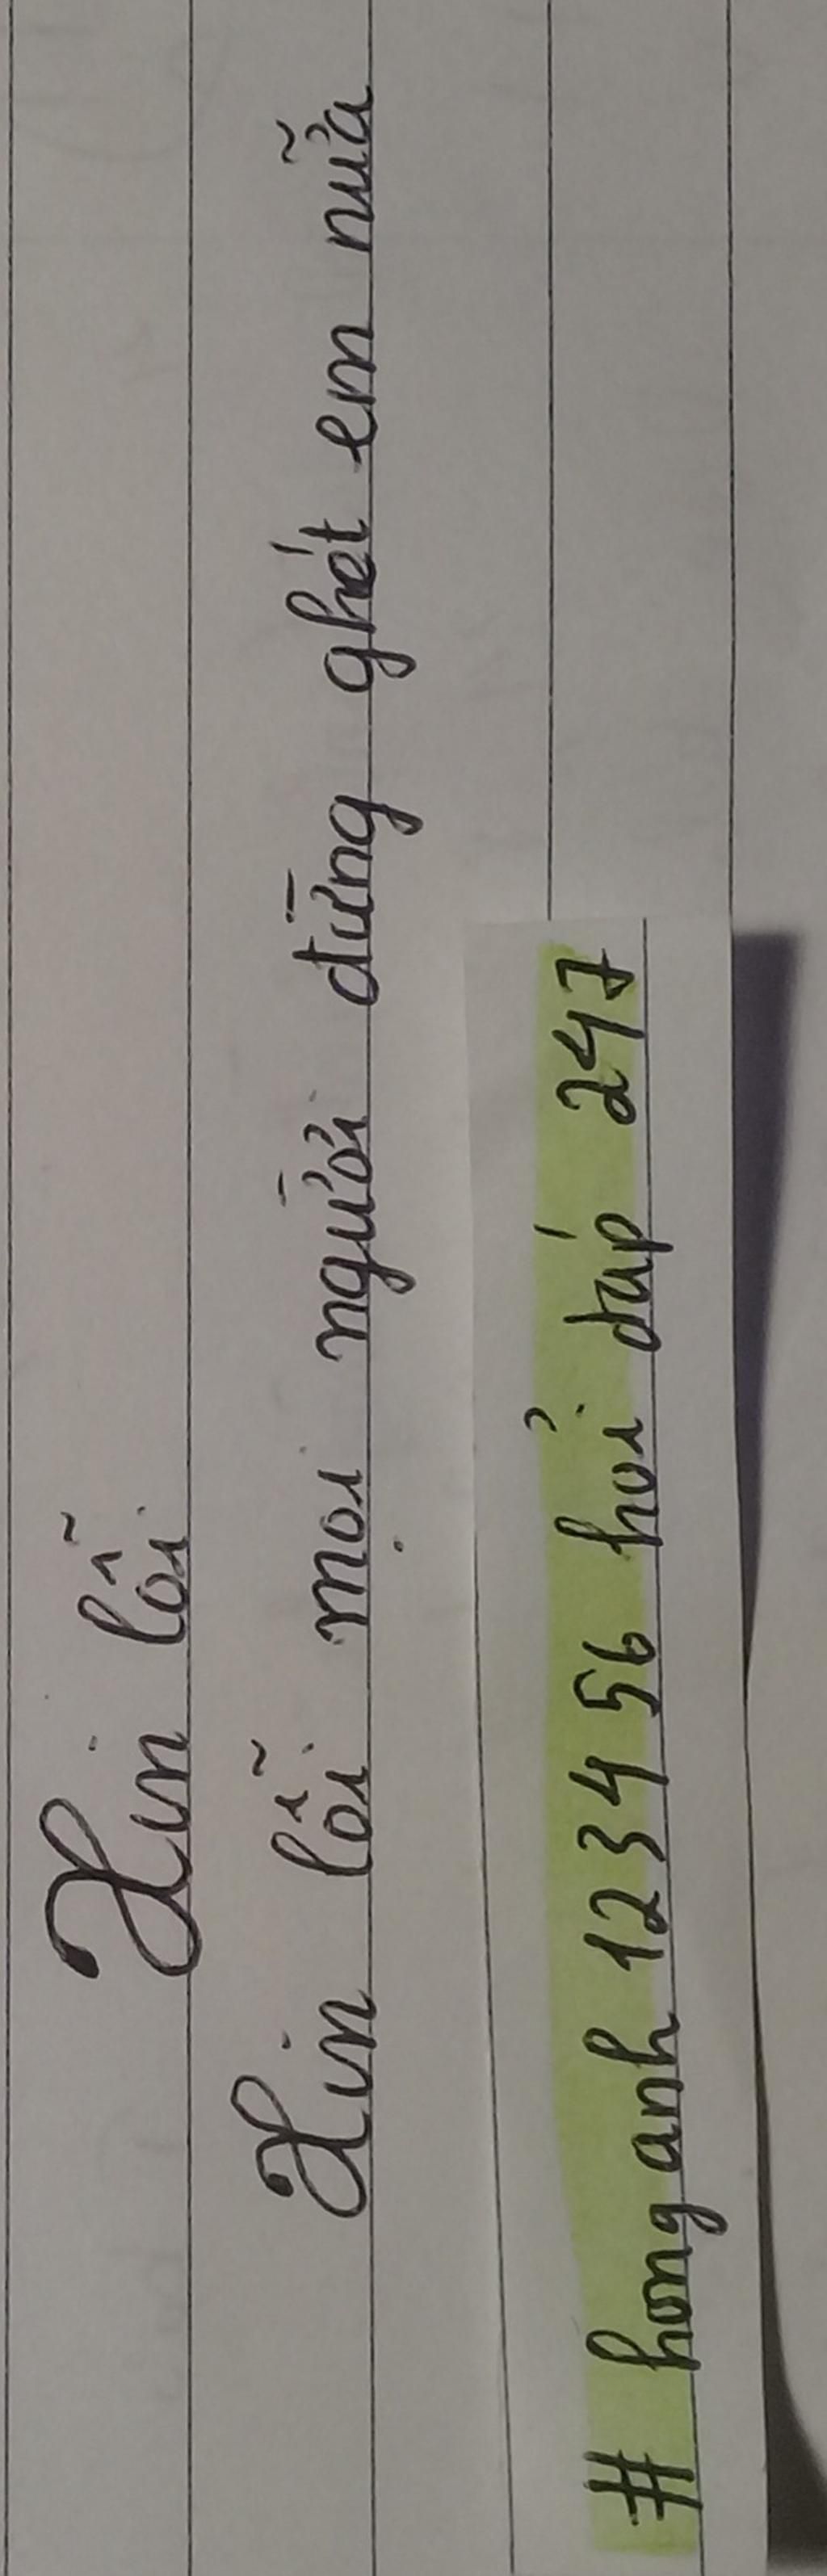 Xin lỗi
Xin lỗi mọi người đừng ghét em nữa
# honganh 123456 hỏi đáp 247